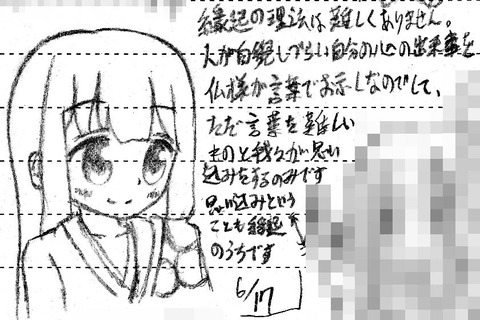 縁起の理法は難しくありません。
人が自覚しづらい自分の心の出来事を
仏様が言葉でお示しなのでして、
ただ言葉を難しい
ものと我々が思い
込みをするのみです
思い込みという
ことも縁起
のうちです
6/17